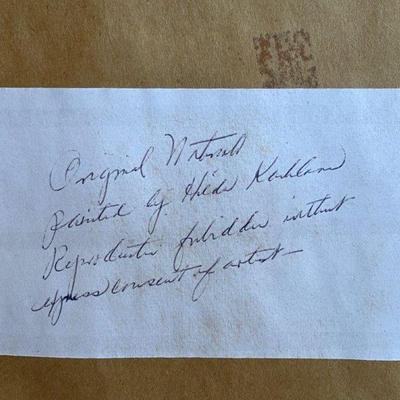 Original
painted by Hilda
Reproduction forbidden without
express consent of artist